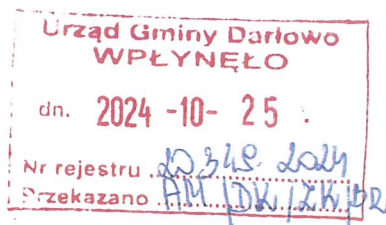 Urząd Gminy Darłowo
WPŁYNĘŁO
dn. 2024 -10- 25 .
Nr rejestru 2024
Przekazano AM | DK | ZK |